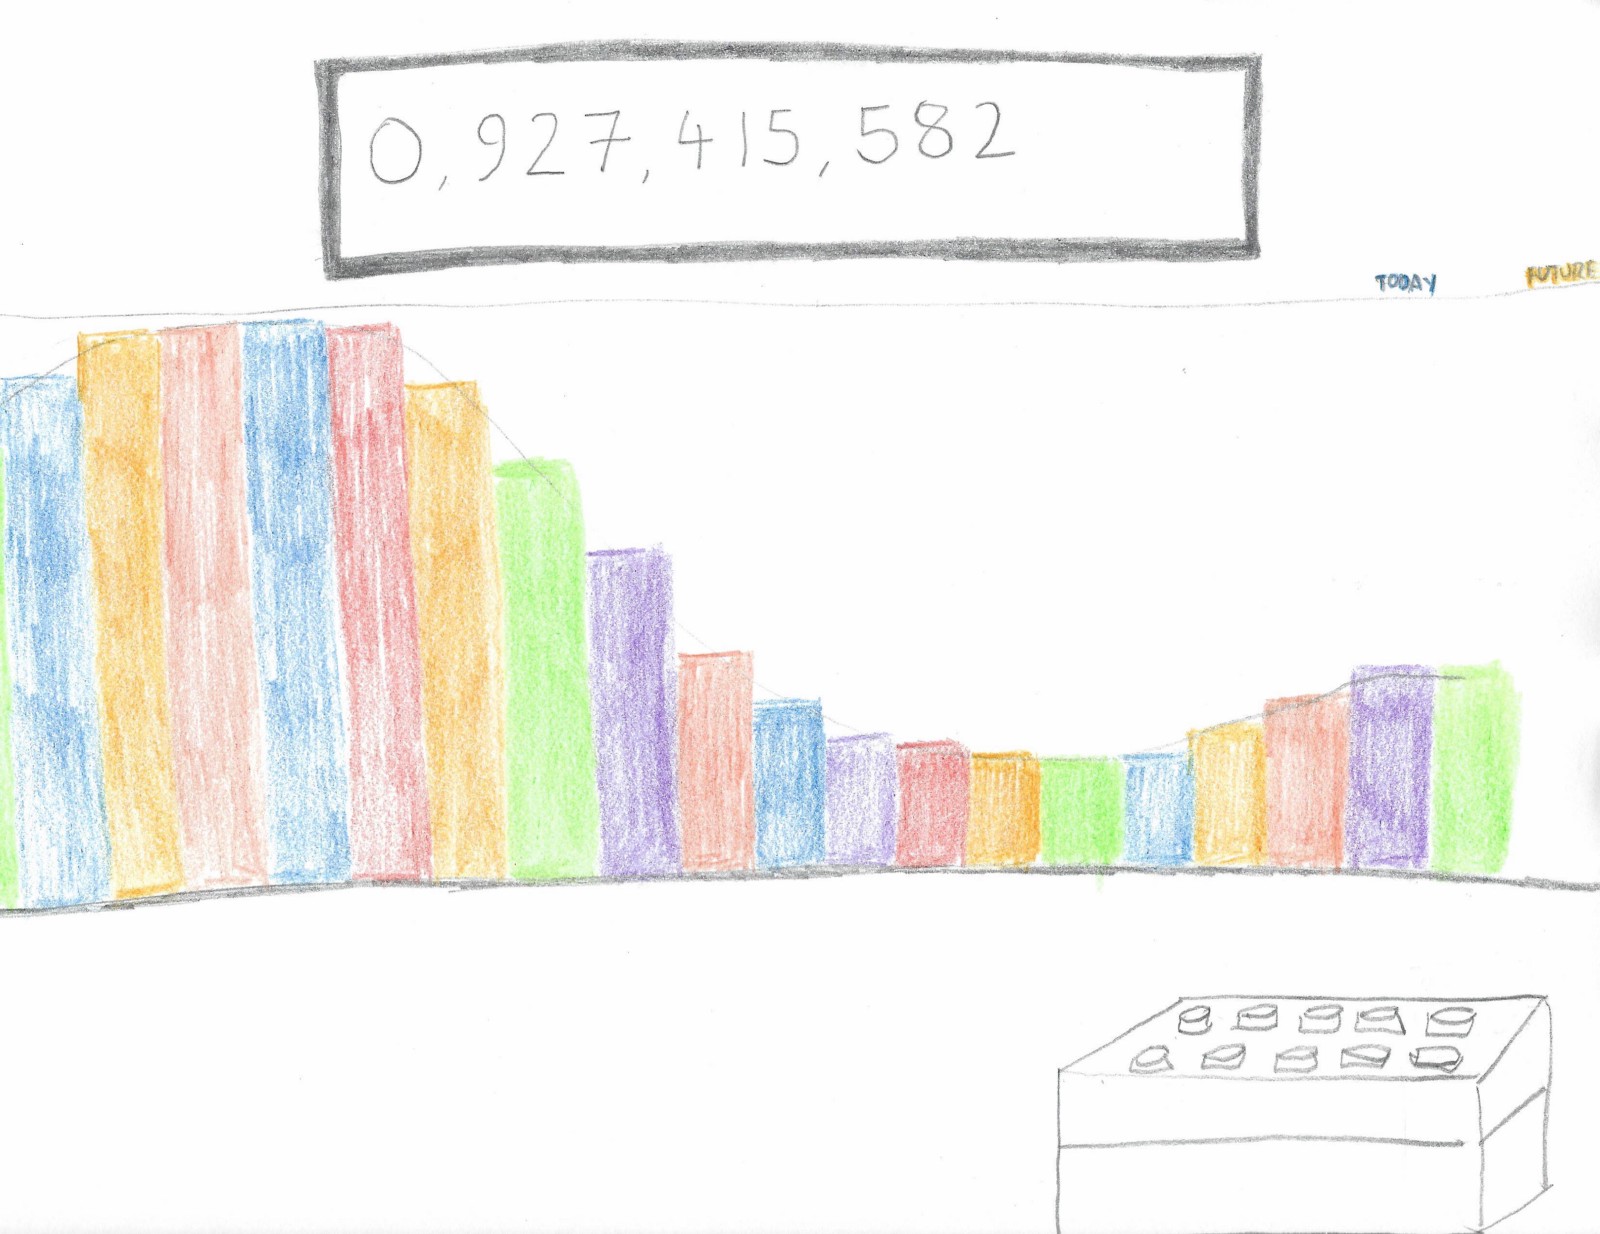 0,927,415,582
TODAY
FUTURE